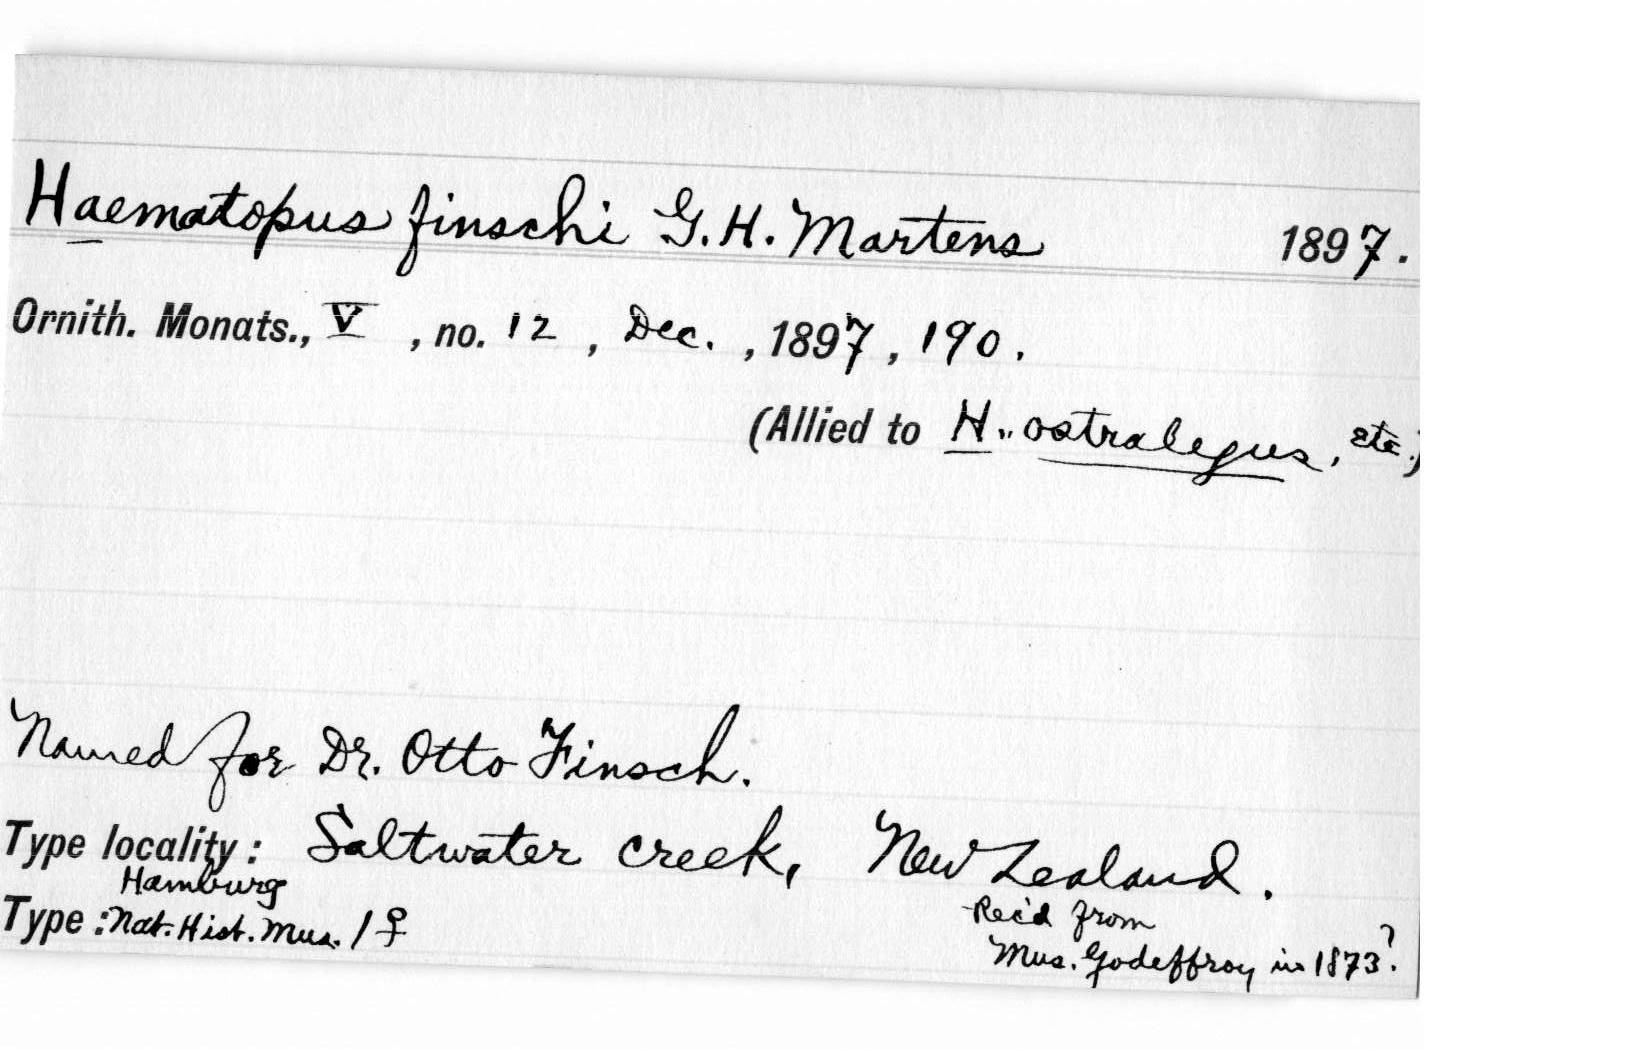 Haematopus finschi G. H. Martens 1897.
Ornith. Monats., V , no. 12 , Dec. , 1897 , 190 .
(Allied to H. ostralegus, etc.)
Named for Dr. Otto Finsch.
Type locality : Saltwater creek, New Zealand.
Hamburg
Type : Nat. Hist. Mus. 1♀
Rec'd from
Mus. Godeffroy in 1873?